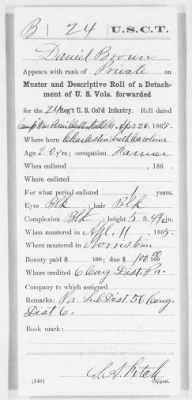 B | 24 | U.S.C.T.
Daniel Brown
Appears with rank of Private on
Muster and Descriptive Roll of a Detach-
ment of U. S. Vols. forwarded
for the 24 Reg't U.S. Col'd Infantry. Roll dated
Camp Wm Penn Apl 26, 1865.
Where born Charleston South Carolina
Age 20 y'rs; occupation Farmer
When enlisted , 186 .
Where enlisted
For what period enlisted 1 years.
Eyes Blk ; hair Blk
Complexion Blk ; height 5 ft. in.
When mustered in Apl. 11 , 1865.
Where mustered in Norristown
Bounty paid $ 100; due $ 100
Where credited 6 Cong Dist. Pa.
Company to which assigned
Remarks: Pa. Sub Dist. Cong.
Dist 6.
Book mark:
(540) Copyist.